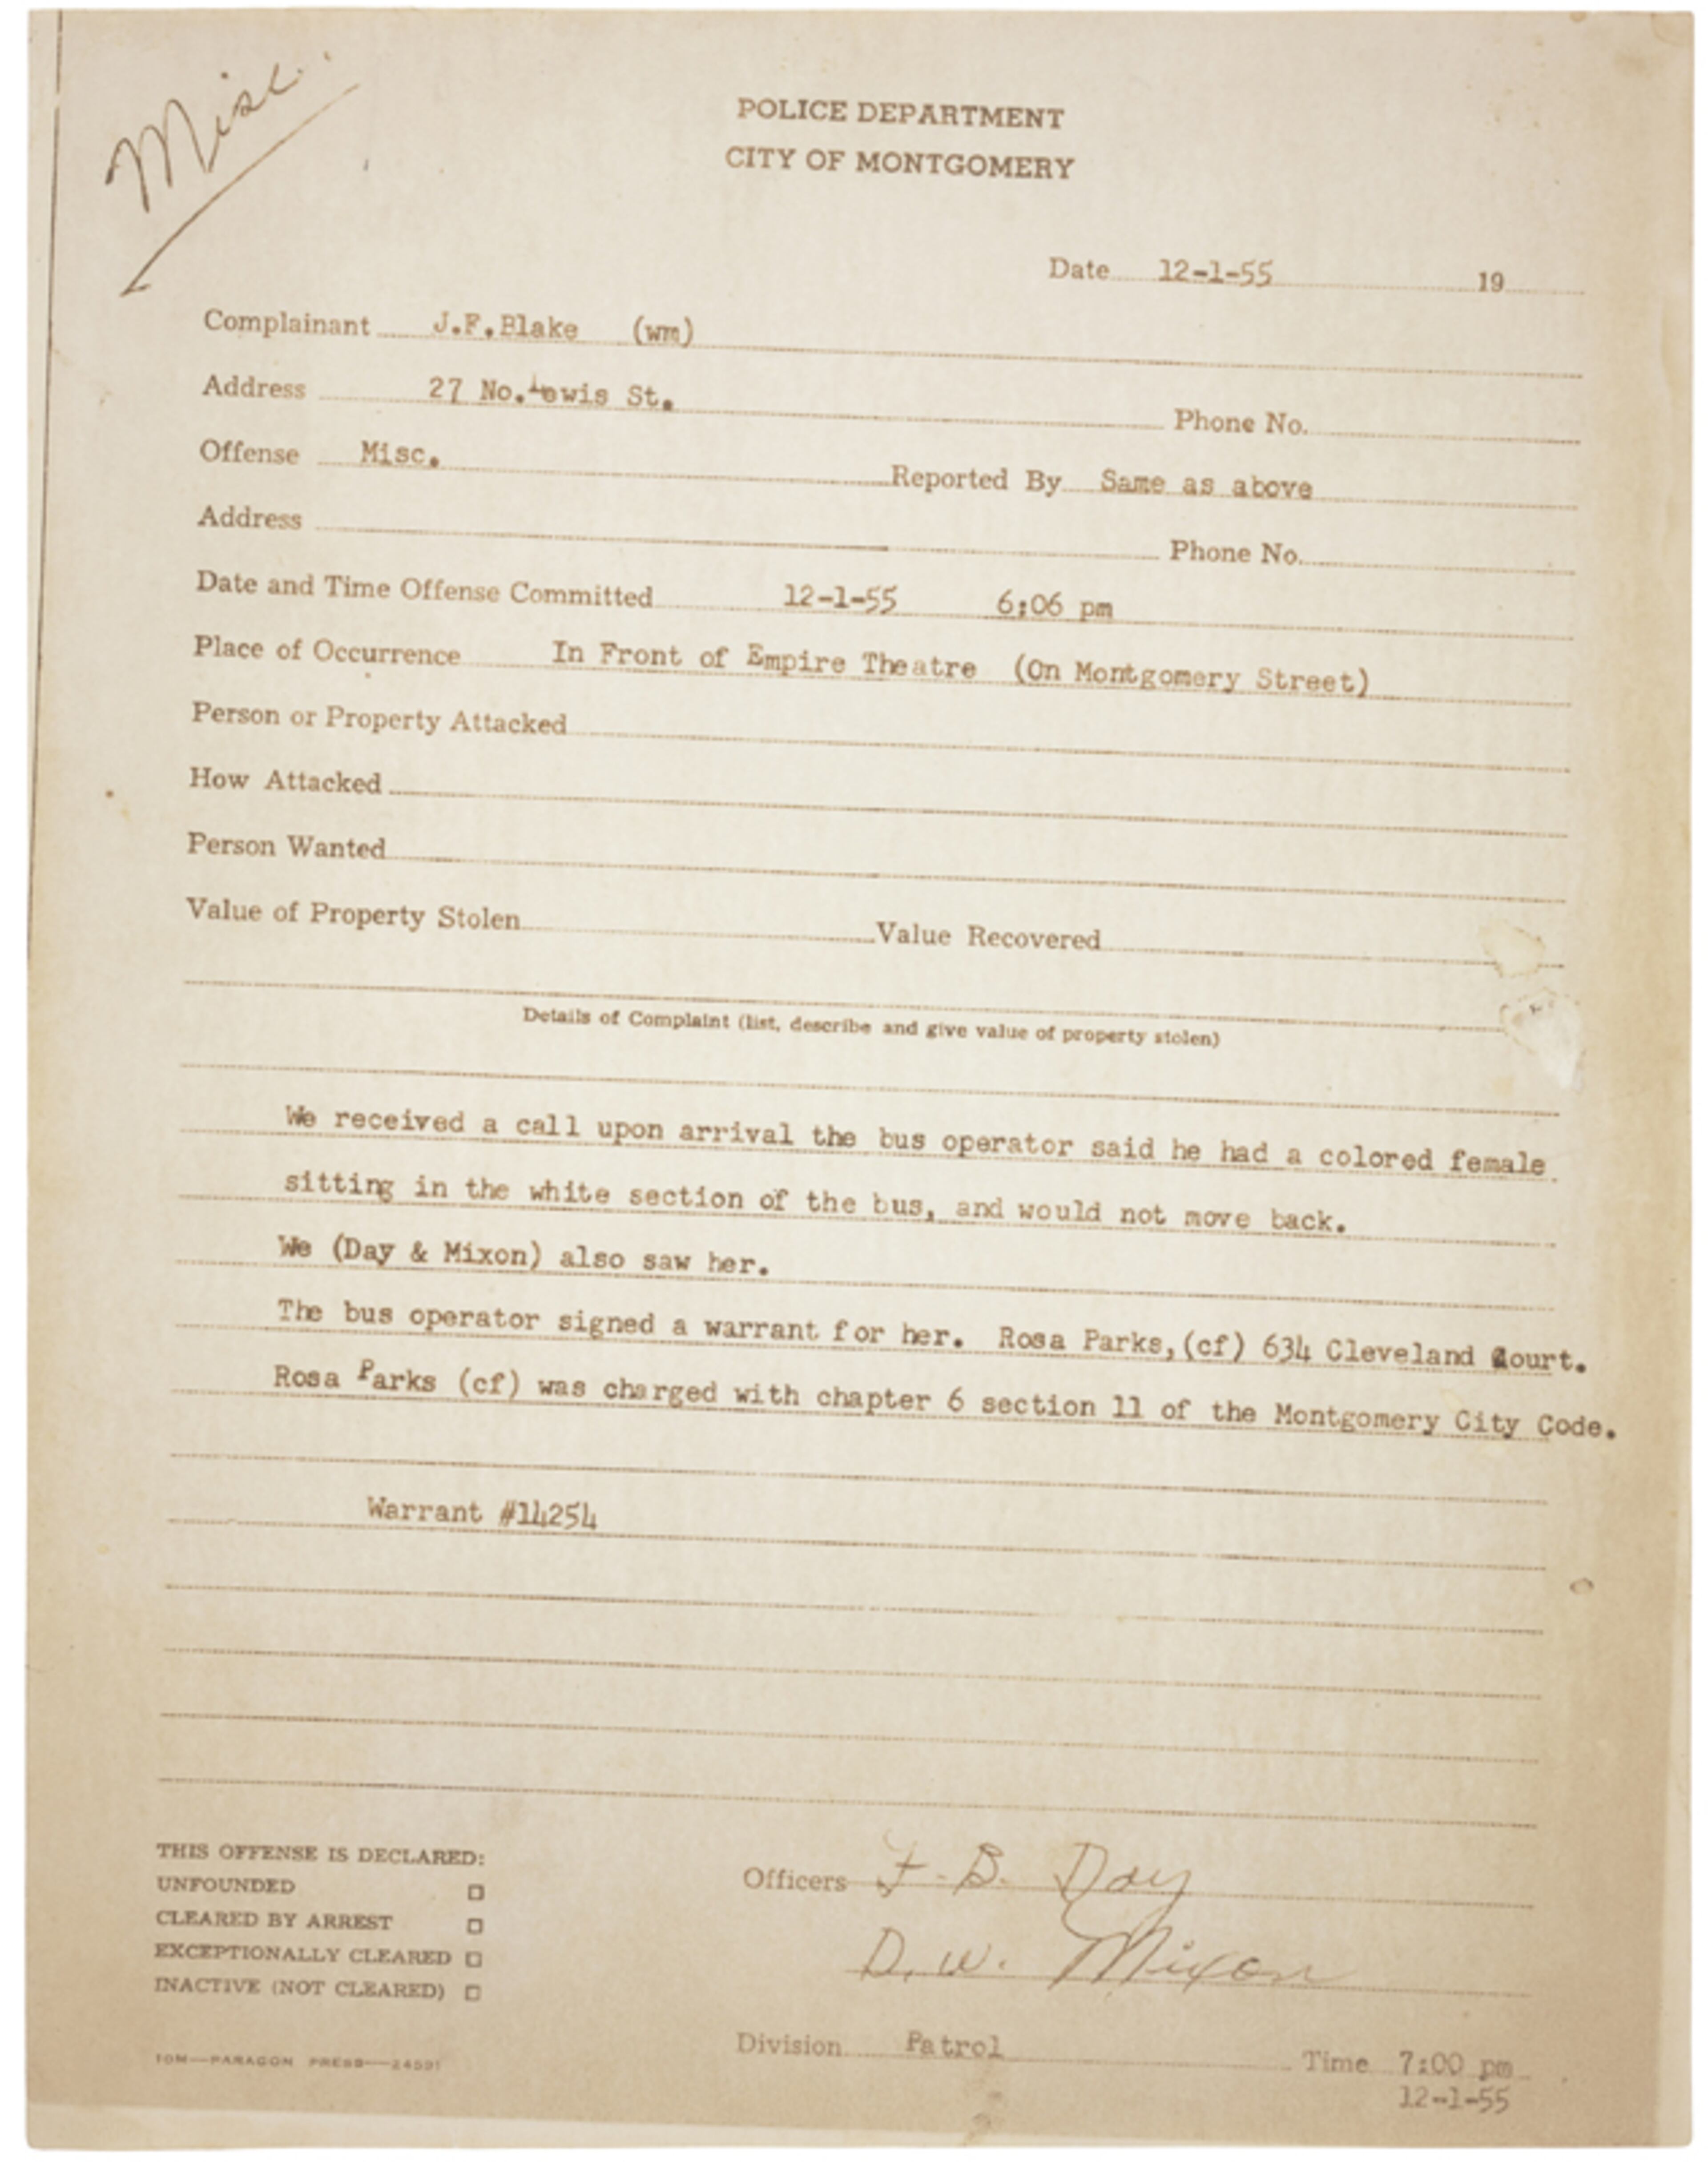 Misc.
POLICE DEPARTMENT
CITY OF MONTGOMERY
Date 12-1-55 19
Complainant J.F.Blake (wm)
Address 27 No.Lewis St. Phone No.
Offense Misc. Reported By Same as above
Address Phone No.
Date and Time Offense Committed 12-1-55 6:06 pm
Place of Occurrence In Front of Empire Theatre (On Montgomery Street)
Person or Property Attacked
How Attacked
Person Wanted
Value of Property Stolen Value Recovered
Details of Complaint (list, describe and give value of property stolen)
We received a call upon arrival the bus operator said he had a colored female
sitting in the white section of the bus, and would not move back.
We (Day & Mixon) also saw her.
The bus operator signed a warrant for her. Rosa Parks,(cf) 634 Cleveland Court.
Rosa Parks (cf) was charged with chapter 6 section 11 of the Montgomery City Code.
Warrant #14254
THIS OFFENSE IS DECLARED:
UNFOUNDED
CLEARED BY ARREST
EXCEPTIONALLY CLEARED
INACTIVE (NOT CLEARED)
Officers F. B. Day
D. W. Mixon
Division Patrol Time 7:00 pm
12-1-55
10M—PARAGON PRESS—24591